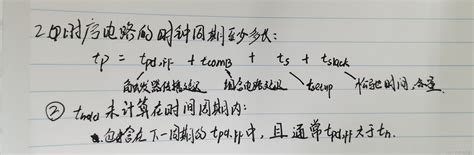 2. 时序电路的时钟周期至少多长:
tp = tpd,ff + tcomb + ts + tslack
触发器传播延迟 组合电路延迟 tsetup 松弛时间,余量
② thold 未计算在时间周期内:
包含在下一周期的 tpd,ff 中, 且通常 tpd,ff 大于 th.